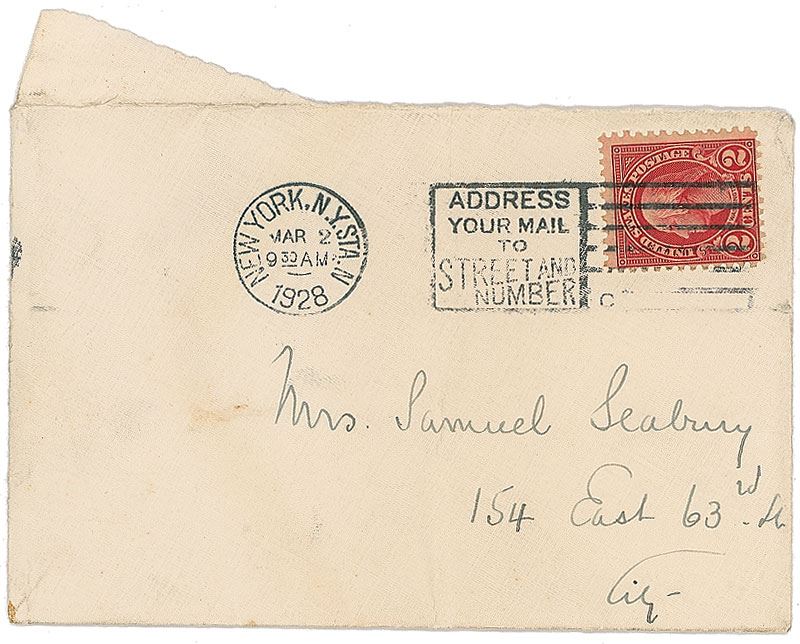 NEW YORK, N.Y. STA. N
MAR 2
9 30 AM
1928
ADDRESS
YOUR MAIL
TO
STREET AND
NUMBER
C
2
2
CENTS
POSTAGE
Mrs. Samuel Seabury
154 East 63rd. St
City-